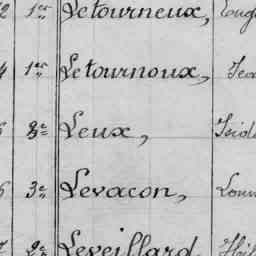 2 1er Letourneux,
4 1er Letournoux, Jea
2e Leux, Isid
3e Levacon, Loui
2e Leveillard